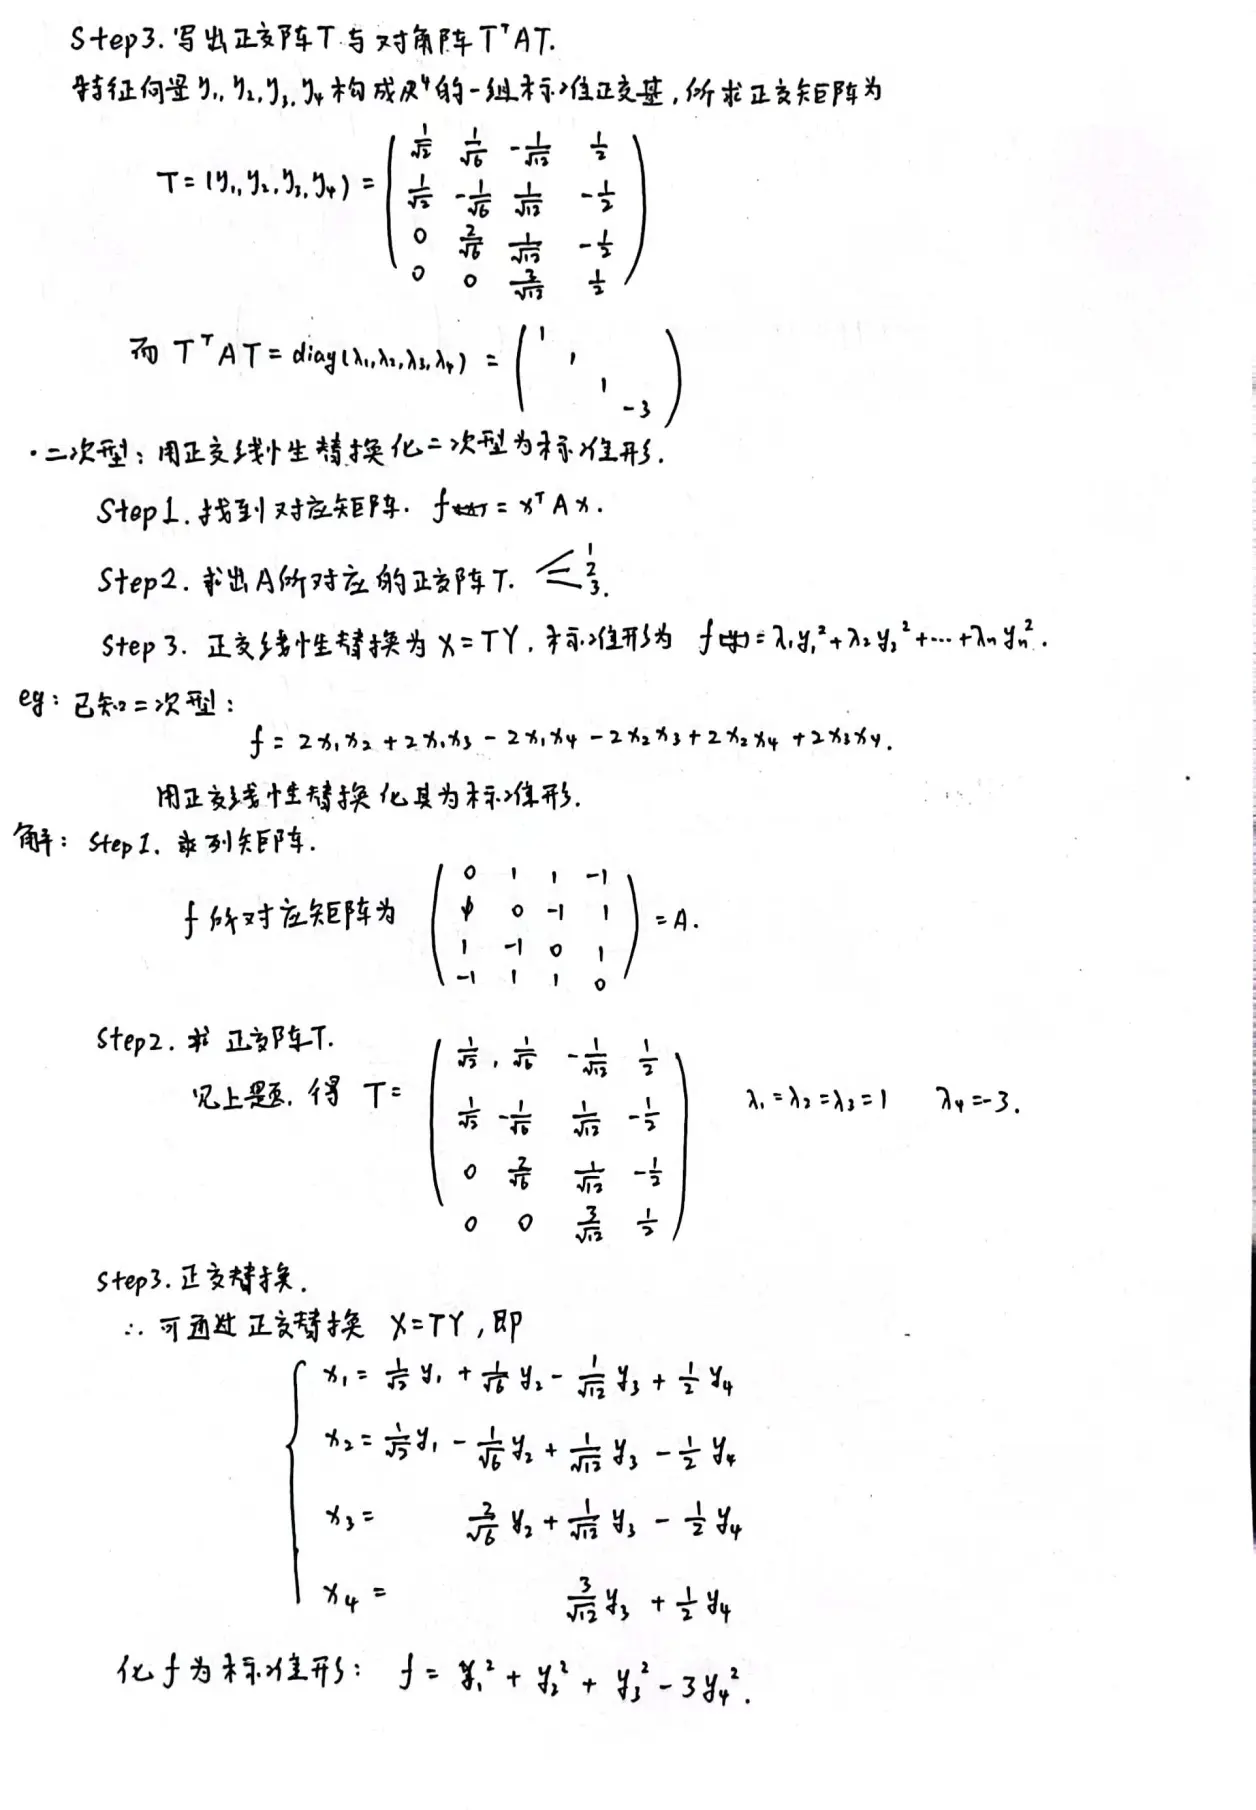 Step3. 写出正交阵T与对角阵TᵀAT.
特征向量y₁, y₂, y₃, y₄构成R⁴的一组标准正交基, 所求正交矩阵为
T = (y₁, y₂, y₃, y₄) = ( 1/√2 1/√6 -1/√12 1/2
1/√2 -1/√6 1/√12 -1/2
0 2/√6 1/√12 -1/2
0 0 3/√12 1/2 )
而 TᵀAT = diag(λ₁, λ₂, λ₃, λ₄) = ( 1
1
1
-3 )
·二次型: 用正交线性替换化二次型为标准形.
Step1. 找到对应矩阵. f = xᵀAx.
Step2. 求出A所对应的正交阵T. 1 2 3.
Step 3. 正交线性替换为 X=TY, 标准形为 f = λ₁y₁² + λ₂y₂² + ⋯ + λₙyₙ².
eg: 已知二次型:
f = 2x₁x₂ + 2x₁x₃ - 2x₁x₄ - 2x₂x₃ + 2x₂x₄ + 2x₃x₄.
用正交线性替换化其为标准形.
解: Step1. 列矩阵.
f所对应矩阵为 ( 0 1 1 -1
1 0 -1 1
1 -1 0 1
-1 1 1 0 ) = A.
Step2. 求正交阵T.
见上题, 得 T = ( 1/√2, 1/√6 -1/√12 1/2
1/√2 -1/√6 1/√12 -1/2
0 2/√6 1/√12 -1/2
0 0 3/√12 1/2 ) λ₁=λ₂=λ₃=1 λ₄=-3.
Step3. 正交替换.
∴ 可通过正交替换 X=TY, 即
x₁ = 1/√2 y₁ + 1/√6 y₂ - 1/√12 y₃ + 1/2 y₄
x₂ = 1/√2 y₁ - 1/√6 y₂ + 1/√12 y₃ - 1/2 y₄
x₃ = 2/√6 y₂ + 1/√12 y₃ - 1/2 y₄
x₄ = 3/√12 y₃ + 1/2 y₄
化f为标准形: f = y₁² + y₂² + y₃² - 3y₄².